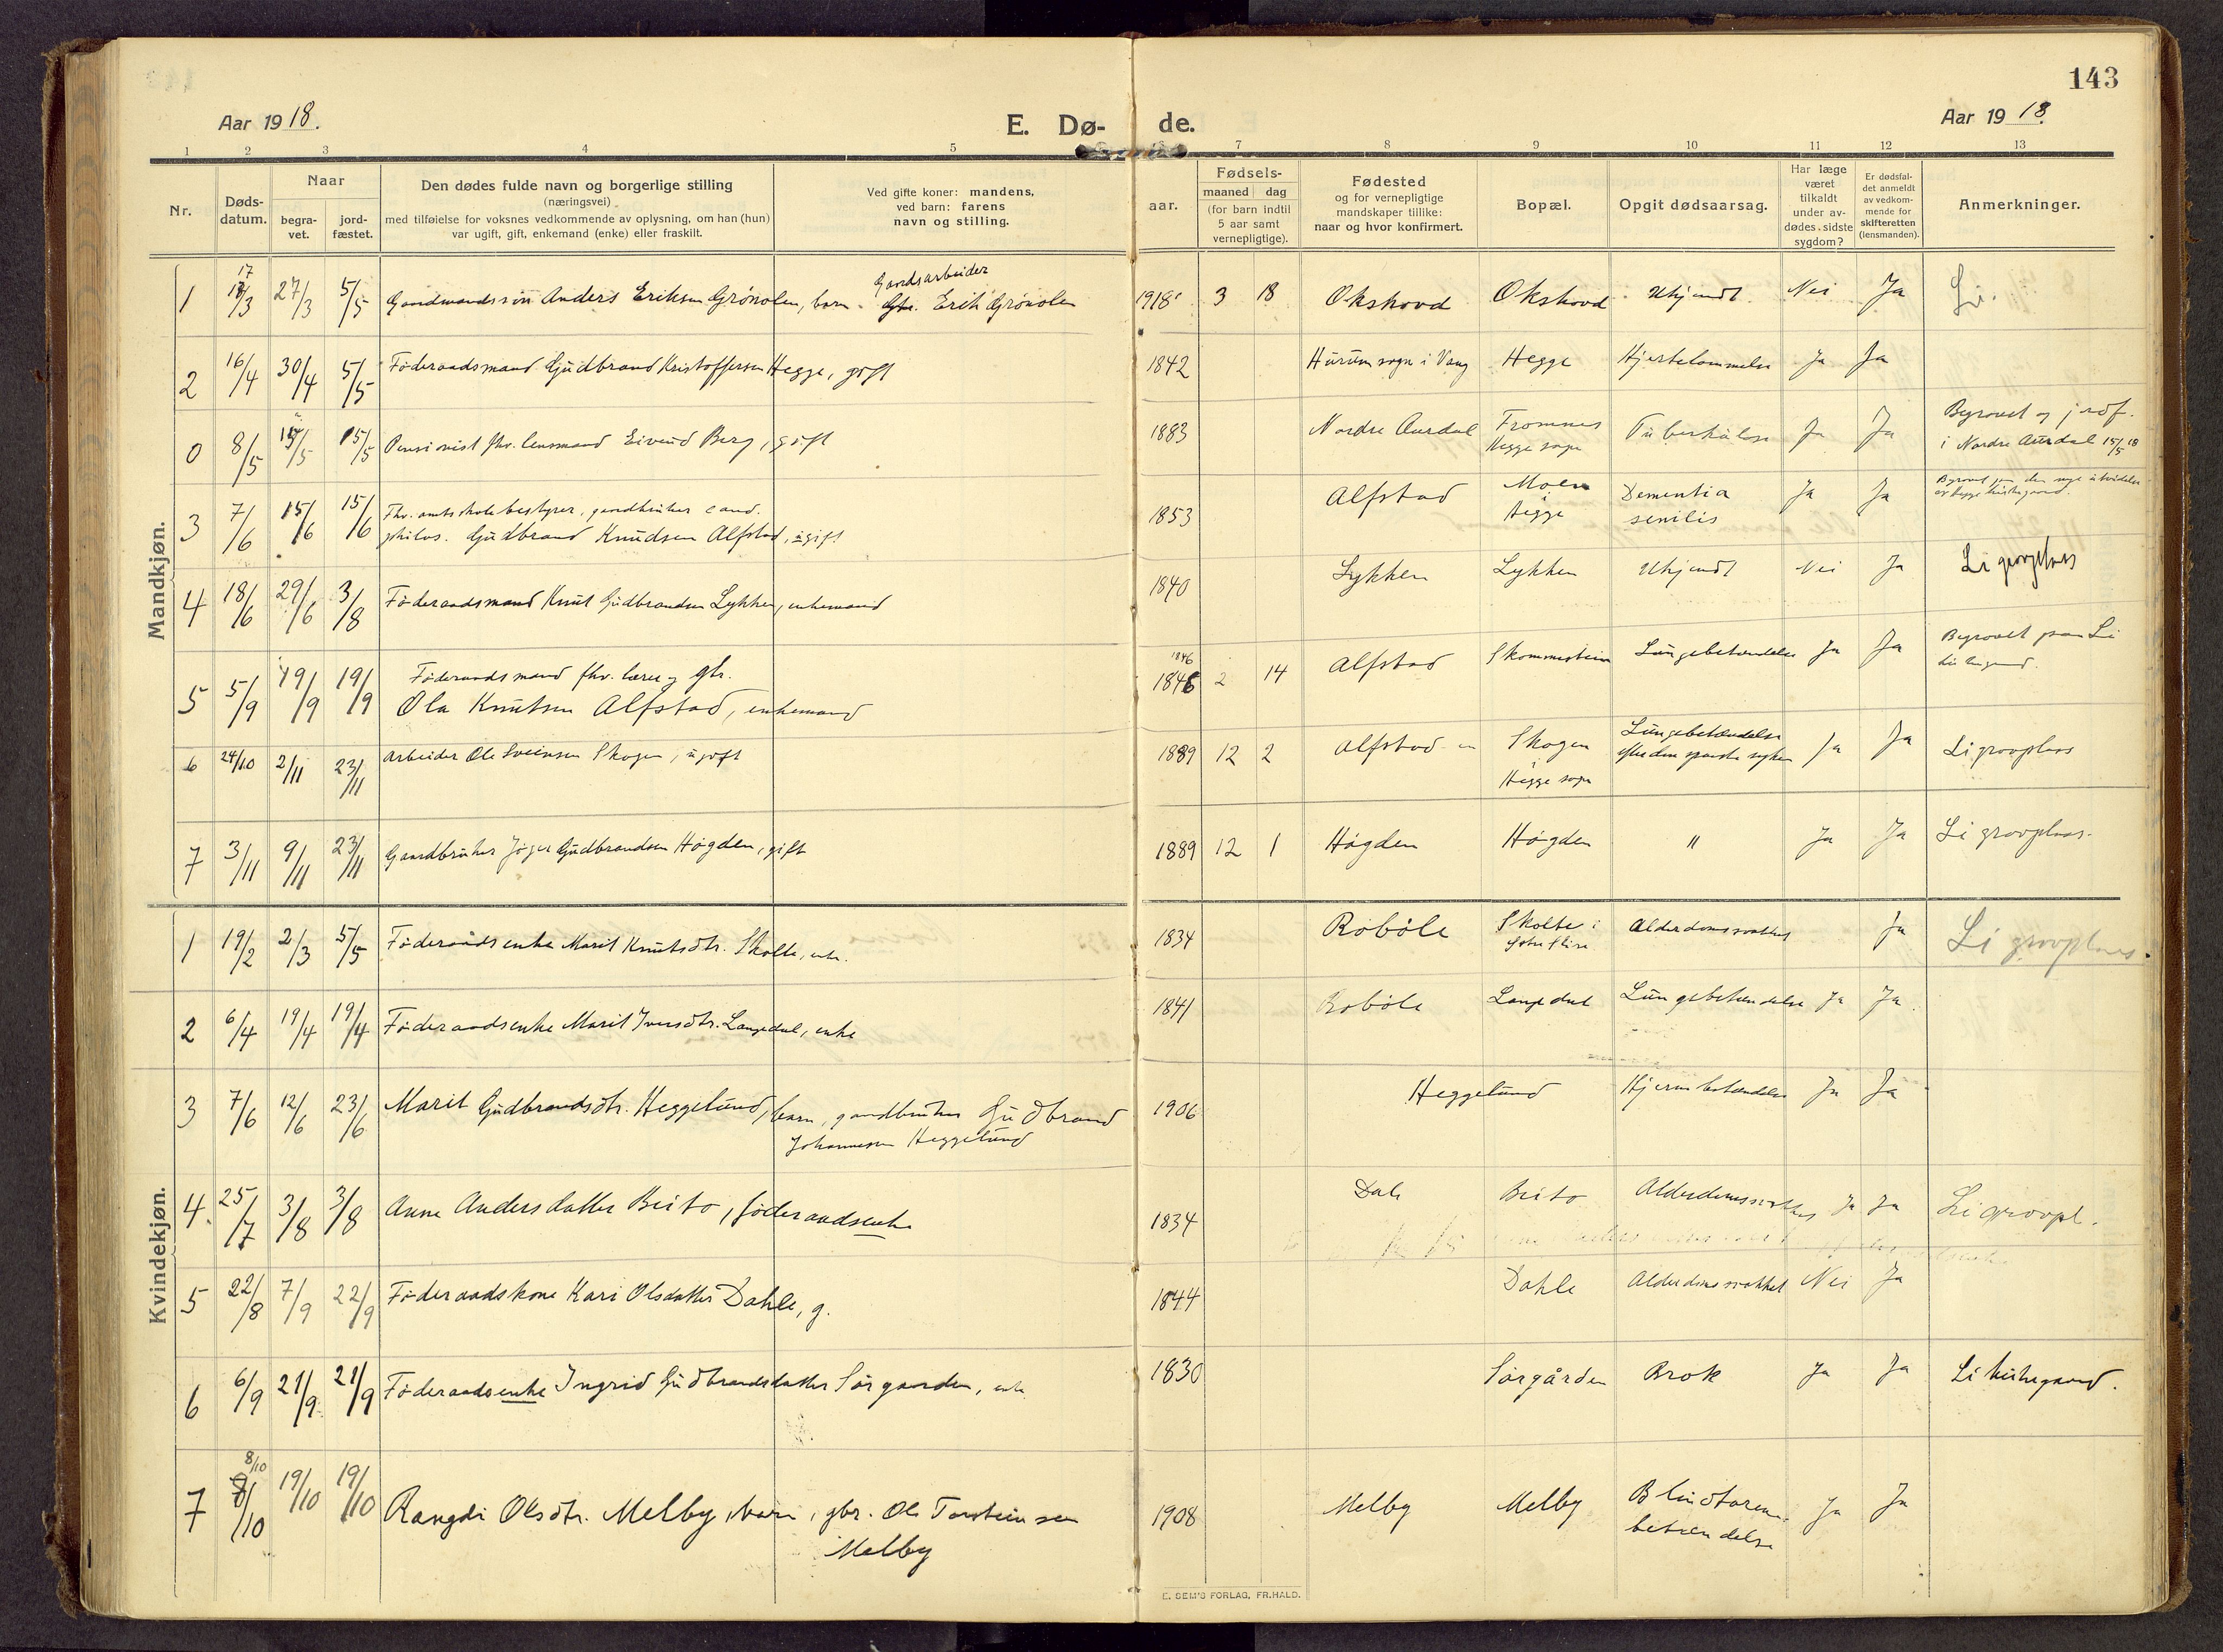 143
Aar 1918.
E. Dø-
de.
Aar 1918.
1 2 3 4 5 6 7 8 9 10 11 12 13
Nr.
Døds-
datum.
Naar
begra-
vet.
jord-
fæstet.
Den dødes fulde navn og borgerlige stilling
(næringsvei)
med tilføielse for voksnes vedkommende av oplysning, om han (hun)
var ugift, gift, enkemand (enke) eller fraskilt.
Ved gifte koner: mandens,
ved barn: farens
navn og stilling.
Fødsels-
aar.
maaned dag
(for barn indtil
5 aar samt
vernepligtige).
Fødested
og for vernepligtige
mandskaper tillike:
naar og hvor konfirmert.
Bopæl.
Opgit dødsaarsag.
Har læge
været
tilkaldt
under av-
dødes sidste
sygdom?
Er dødsfal-
det anmeldt
av vedkom-
mende for
skifteretten
(lensmanden).
Anmerkninger.
Mandkjøn.
17
Gaardsarbeider
1 /3 27/3 5/5 Gaardmandssøn Anders Eriksen Grønolen, barn. Erik Grønolen 1918 3 18 Okshovd Okshovd Ukjendt Nei Ja Li.
2 16/4 30/4 5/5 Føderaadsmand Gudbrand Kristoffersen Hegge, gift 1842 Hurum sogn i Vang Hegge Hjertelammelse Ja Ja
0 8/5 15/5 15/5 Pensionist fhv. lensmand Eivind Berg, gift 1883 Nordre Aurdal Fromnes Tuberkulose Ja Ja Begravet og jordf.
Hegge sogn
i Nordre Aurdal 15/5 18
3 7/6 15/6 15/6 Fhv. amtsskolebestyrer, gaardbruker cand.
philos. Gudbrand Knudsen Alfstad, ugift 1853 Alfstad Moen
i
Hegge Dementia
senilis Ja Ja Begravet paa den nye utvidelse
av Hegge kirkegaard.
4 18/6 29/6 3/8 Føderaadsmand Knut Gudbrandsen Lykken, enkemand 1840 Lykken Lykken Ukjendt Nei Ja Li gravplass
5 5/9 19/9 19/9 Føderaadsmand fhv. lærer og gbr.
Ola Knutsen Alfstad, enkemand 1846
1846 2 14 Alfstad Skommestein Lungebetændelse Ja Ja Begravet paa Li
6 24/10 2/11 23/11 Arbeider Ole Sveinsen Skogen, ugift 1889 12 2 Alfstad Skogen
i
Hegge sogn Lungebetændelse
efter den spanske syken Ja Ja Li gravplass
7 3/11 9/11 23/11 Gaardbruker Jøger Gudbrandsen Høgden, gift 1889 12 1 Høgden Høgden " Ja Ja Li gravplass.
Kvindekjøn.
1 19/2 2/3 5/5 Føderaads enke Marit Knutsdtr. Skolte, enke. 1834 Robøle Skolte i
Østre Slire Alderdomssvakhet Ja Li gravplass.
2 6/4 19/4 19/4 Føderaadsenke Marit Iversdtr. Langedal, enke 1841 Robøle Langedal Lungebetændelse Ja Ja.
3 7/6 12/6 23/6 Marit Gudbrandsdtr. Heggelund, barn, gaardbruker Gudbrand
Johannesen Heggelund 1906 Heggelund Hjernebetændelse Ja Ja
4. 25/7 3/8 3/8 Anne Andersdatter Beito, føderaadsenke 1834 Dale Beito Alderdomssvakhet Ja Ja Li gravpl.
5 22/8 7/9 22/9 Føderaadskone Kari Olsdatter Dahle, g. 1844 Dahle Alderdomssvakhet Nei Ja
6 6/9 21/9 21/9 Føderaadsenke Ingrid Gudbrandsdatter Sørgaarden, enke 1830 Sørgården Brok Ja Ja Li kirkegaard.
8/10
7 8/10 19/10 19/10 Rangdi Olsdtr. Melby, barn, gbr. Ole Torsteinsen
Melby 1908 Melby Melby Blindtarm-
betændelse Ja Ja
E. SEM'S FORLAG, FR.HALD.